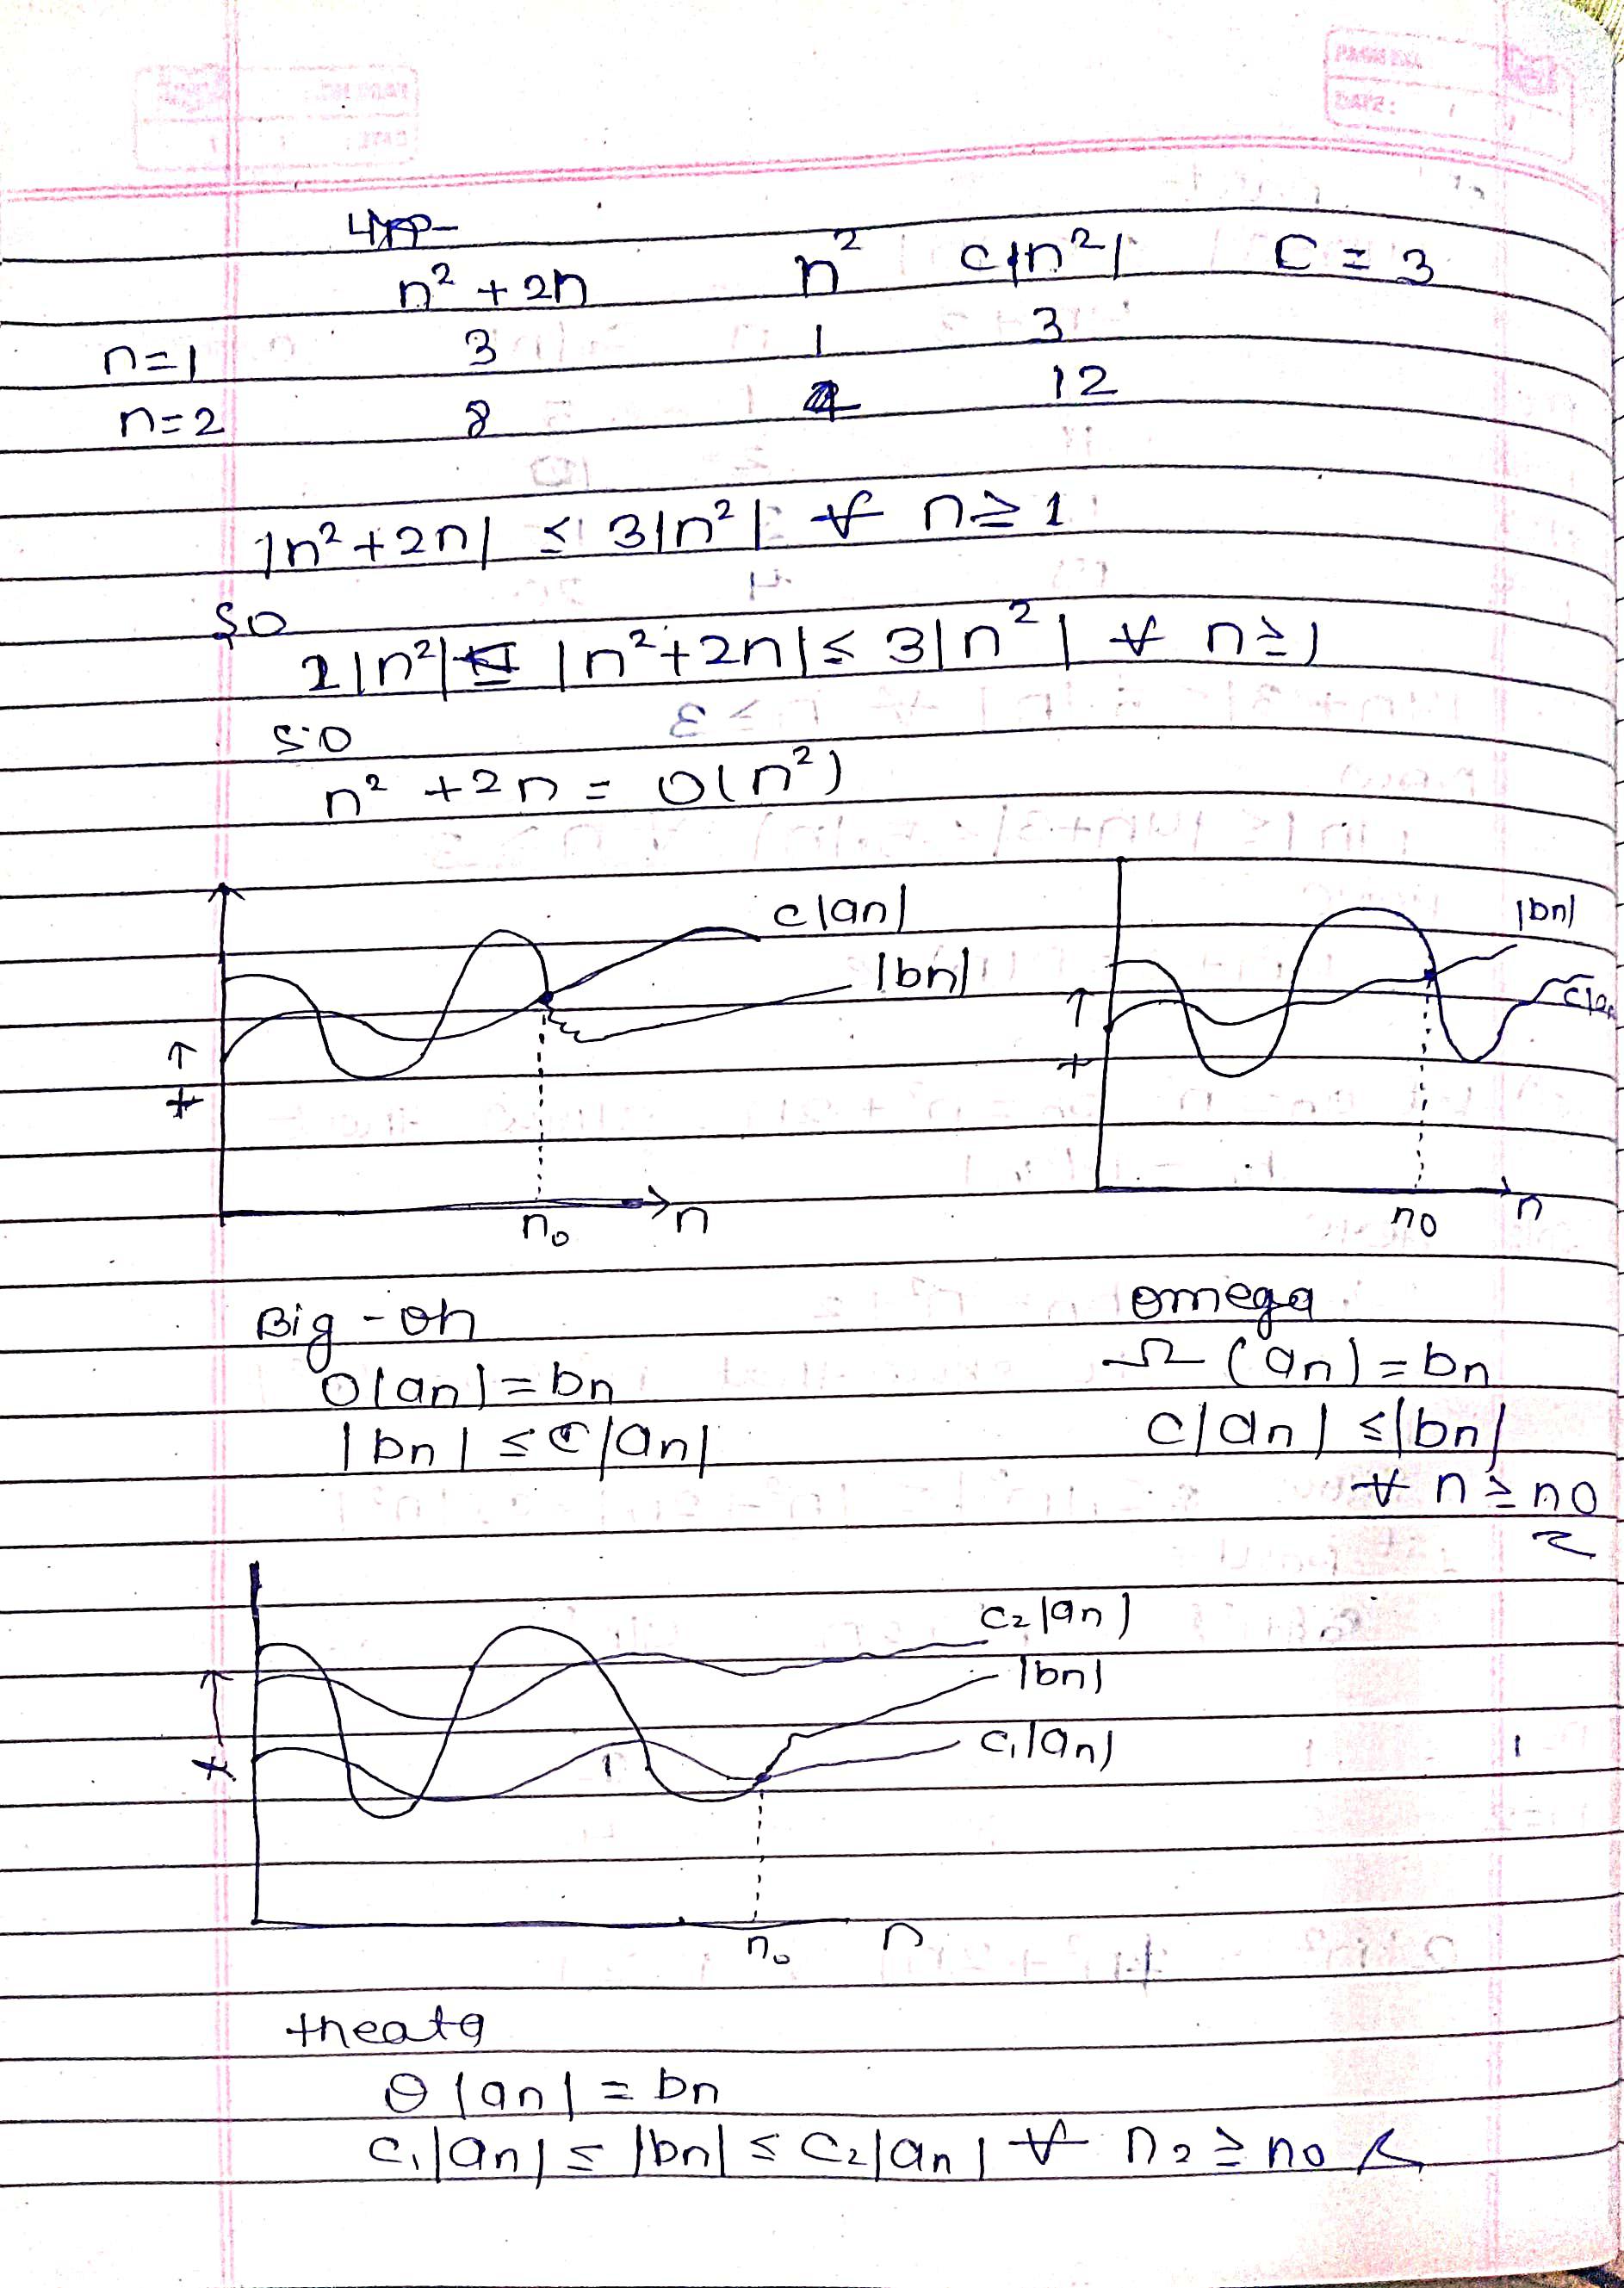 PAGE NO.
DATE:
n² + 2n n² c|n²| C = 3
n=1 3 1 3
n=2 8 4 12
|n²+2n| ≤ 3|n²| ∀ n≥1
SO
1|n²| ≤ |n²+2n| ≤ 3|n²| ∀ n≥1
SO
n² +2n = O(n²)
c|an|
|bn|
↑
t
n₀
n
|bn|
c|an
↑
t
n0
n
Big-oh
O(an)=bn
|bn| ≤ c|an|
omega
Ω(an)=bn
c|an| ≤|bn|
∀ n≥n0
c₂|an|
|bn|
c₁|an|
↑
t
n₀
n
theata
θ|an| = bn
c₁|an| ≤ |bn| ≤ c₂|an| ∀ n₂ ≥ n0